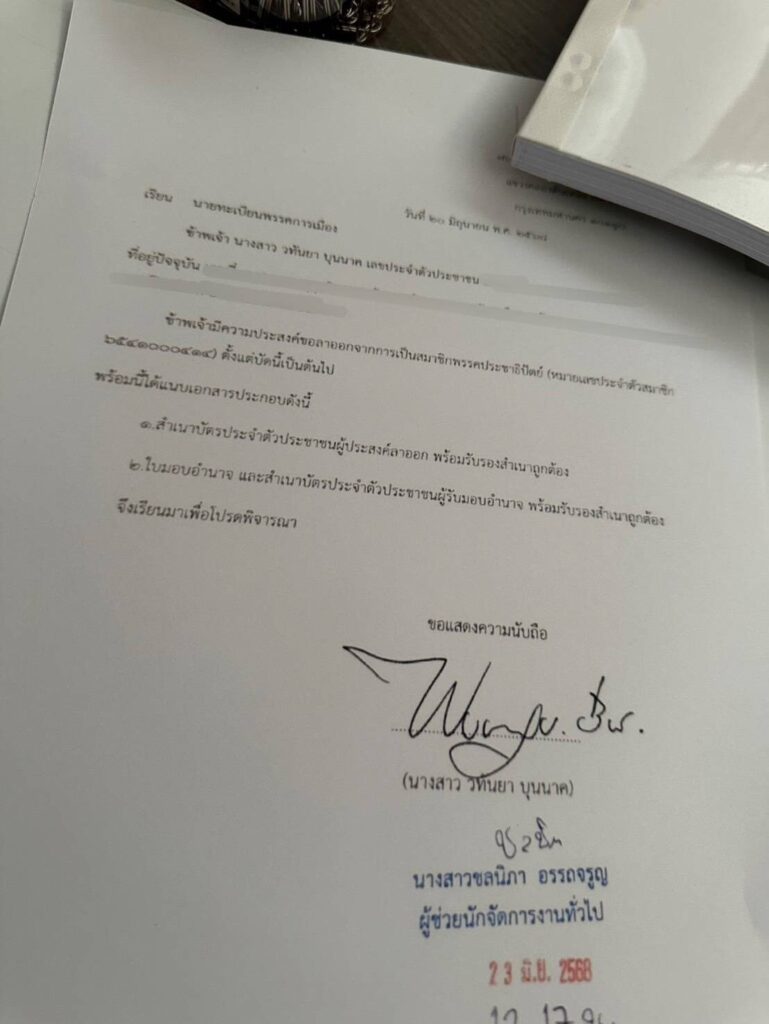 แขวง
กรุงเทพมหานคร
วันที่ ๒๐ มิถุนายน พ.ศ. ๒๕๖๘
เรียน นายทะเบียนพรรคการเมือง
ข้าพเจ้า นางสาว วทันยา บุนนาค เลขประจำตัวประชาชน
ที่อยู่ปัจจุบัน
ข้าพเจ้ามีความประสงค์ขอลาออกจากการเป็นสมาชิกพรรคประชาธิปัตย์ (หมายเลขประจำตัวสมาชิก
๖๕๔๑๐๐๐๔๑๔) ตั้งแต่บัดนี้เป็นต้นไป
พร้อมนี้ได้แนบเอกสารประกอบดังนี้
๑.สำเนาบัตรประจำตัวประชาชนผู้ประสงค์ลาออก พร้อมรับรองสำเนาถูกต้อง
๒.ใบมอบอำนาจ และสำเนาบัตรประจำตัวประชาชนผู้รับมอบอำนาจ พร้อมรับรองสำเนาถูกต้อง
จึงเรียนมาเพื่อโปรดพิจารณา
ขอแสดงความนับถือ
(นางสาว วทันยา บุนนาค)
นางสาวชลนิภา อรรถจรูญ
ผู้ช่วยนักจัดการงานทั่วไป
23 มิ.ย. 2568
12.17 น.